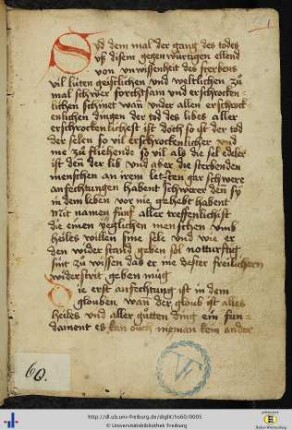 Syd dem mal der gang des todes
uß disem gegenwürtigen ellend
von unwissenheit des sterbens
vil lüten geistlichen und weltlichen zů
mal schwer forchtsam und erschrocken-
lichen schinet wan under allen erschrock
enlichen dingen der tod des libes aller
erschrockenlichest ist doch so ist der tod
der selen so vil erschrockenlicher und
me zů fliehende so vil als die sel edeler
ist den der lib und aber die sterbenden
menschen an irem letsten gar schwere
anfechtungen habent schwerer den sy
in dem leben vor nie gehebt habent
Mit namen fünf aller treffenlichest
die einen yeglichen menschen umb
heiles willen sine sele und wie er
den wider stand geben sol notturftig
sint zu wissen das er me dester frielichern
widerstrit geben müg
Die erst anfechtung ist in dem
glouben wan der gloub ist alles
heiles und aller gůtten ding ein fun-
dament es kan ouch nieman kein ander
1
60.
http://dl.ub.uni-freiburg.de/diglit/hs60/0005
© Universitätsbibliothek Freiburg